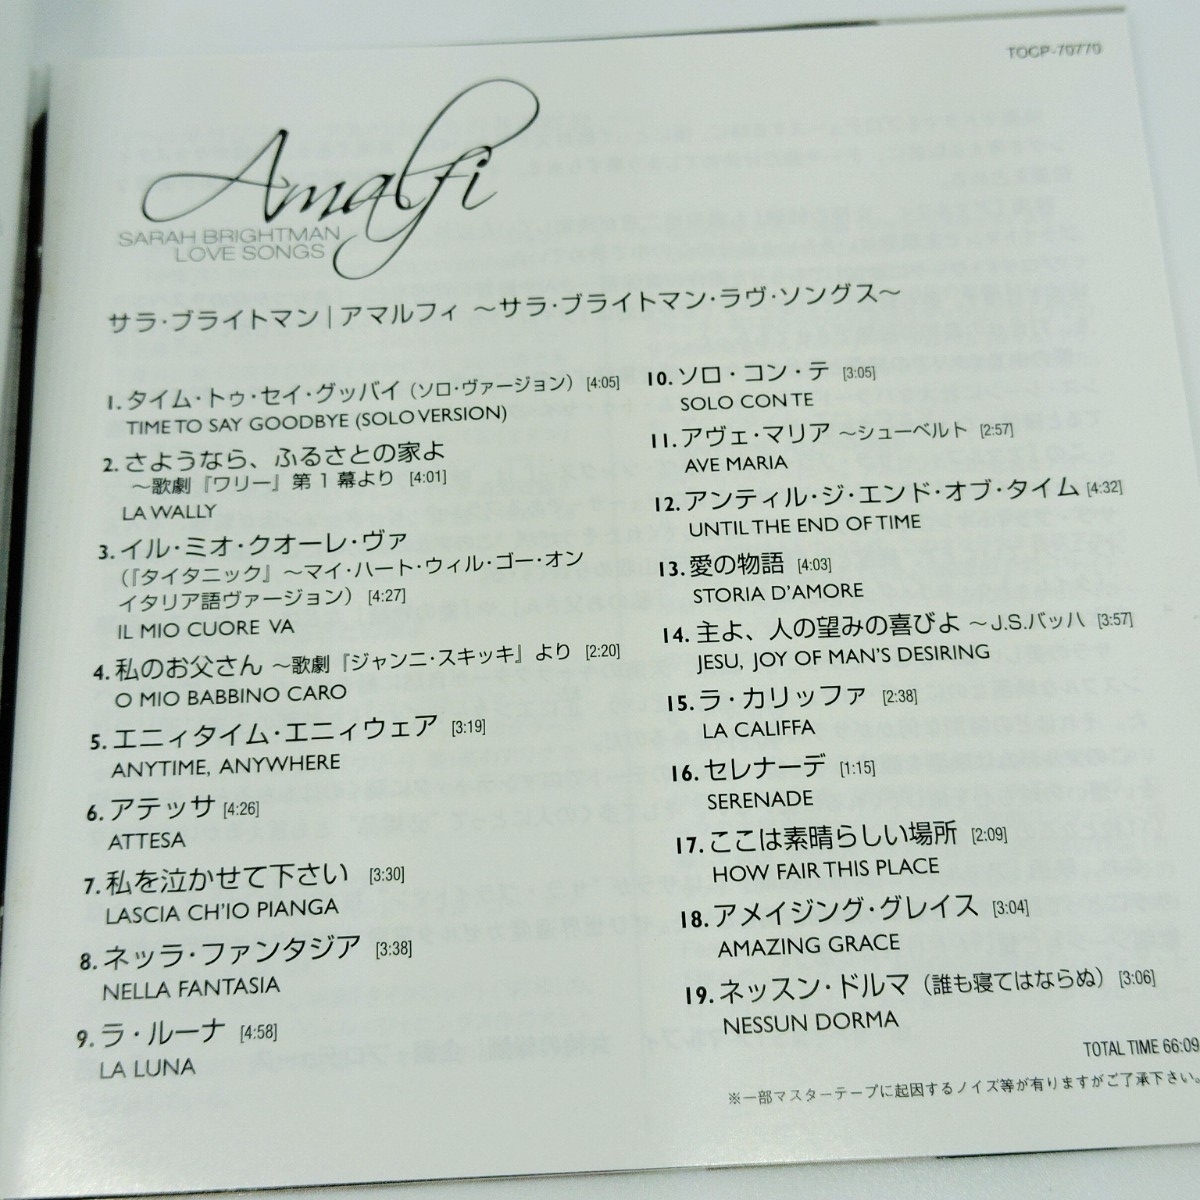 TOCP-70770
Amalfi
SARAH BRIGHTMAN
LOVE SONGS
サラ・ブライトマン|アマルフィ ～サラ・ブライトマン・ラヴ・ソングス～
1. タイム・トゥ・セイ・グッバイ（ソロ・ヴァージョン） [4:05]
TIME TO SAY GOODBYE (SOLO VERSION)
2. さようなら、ふるさとの家よ
～歌劇『ワリー』第1幕より [4:01]
LA WALLY
3. イル・ミオ・クオーレ・ヴァ
（『タイタニック』～マイ・ハート・ウィル・ゴー・オン
イタリア語ヴァージョン） [4:27]
IL MIO CUORE VA
4. 私のお父さん ～歌劇『ジャンニ・スキッキ』より [2:20]
O MIO BABBINO CARO
5. エニィタイム・エニィウェア [3:19]
ANYTIME, ANYWHERE
6. アテッサ [4:26]
ATTESA
7. 私を泣かせて下さい [3:30]
LASCIA CH'IO PIANGA
8. ネッラ・ファンタジア [3:38]
NELLA FANTASIA
9. ラ・ルーナ [4:58]
LA LUNA
10. ソロ・コン・テ [3:05]
SOLO CON TE
11. アヴェ・マリア ～シューベルト [2:57]
AVE MARIA
12. アンティル・ジ・エンド・オブ・タイム [4:32]
UNTIL THE END OF TIME
13. 愛の物語 [4:03]
STORIA D'AMORE
14. 主よ、人の望みの喜びよ ～J.S.バッハ [3:57]
JESU, JOY OF MAN'S DESIRING
15. ラ・カリッファ [2:38]
LA CALIFFA
16. セレナーデ [1:15]
SERENADE
17. ここは素晴らしい場所 [2:09]
HOW FAIR THIS PLACE
18. アメイジング・グレイス [3:04]
AMAZING GRACE
19. ネッスン・ドルマ（誰も寝てはならぬ） [3:06]
NESSUN DORMA
TOTAL TIME 66:09
※一部マスターテープに起因するノイズ等が有りますがご了承下さい。